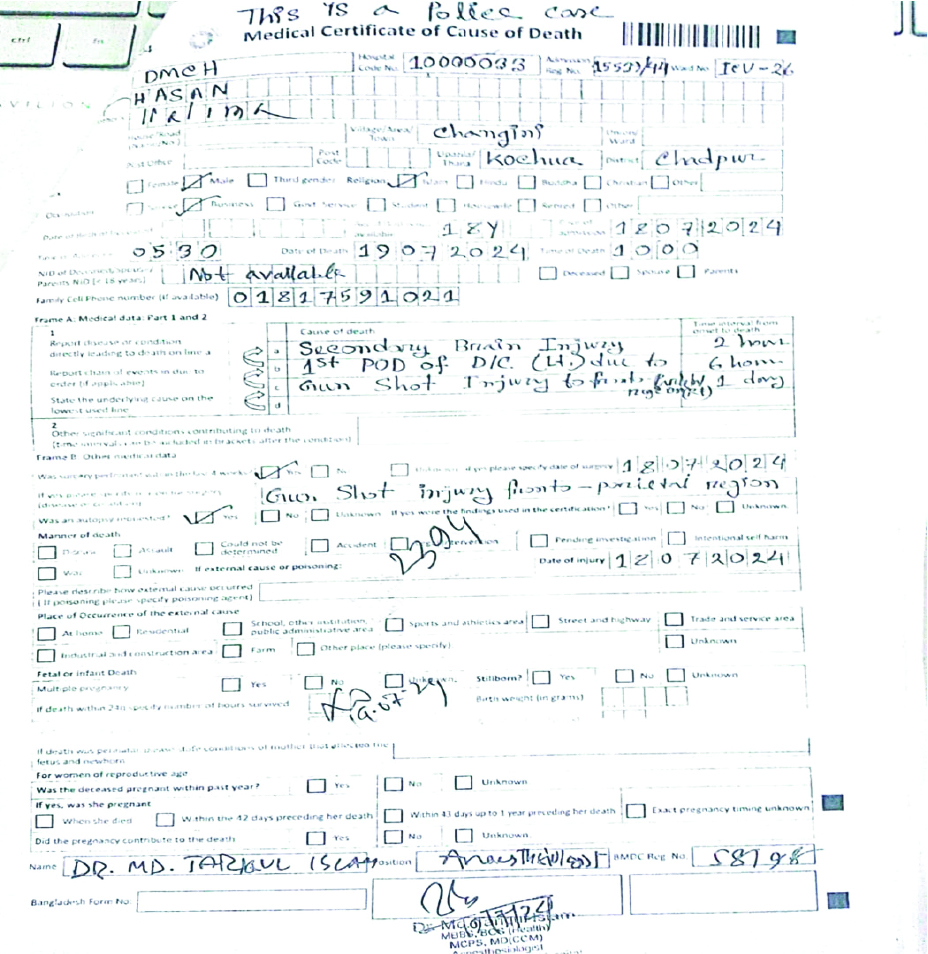 ctrl
fn
This is a Police case
Medical Certificate of Cause of Death
DMCH Hospital Code No. 10000033 Reg No. Ward No ICU-26
HASAN
Village/Area/Town Changini Union/Ward
Post Office Post Code Upazila/Thana Kochua District Chadpur
Female Male Third gender Religion Islam Hindu Buddha Christian Other
Service Business Govt Service Student Housewife Retired Other
18Y 18072024
0530 Date of Death 19072024 Time of Death 1000
Parents NID (< 18 years) Not available Deceased Spouse Parents
Family Cell Phone number (if available) 01817591021
Frame A: Medical data: Part 1 and 2
1
Report disease or condition directly leading to death on line a
Report chain of events in due to order (if applicable)
State the underlying cause on the lowest used line
Cause of death Time interval from onset to death
a Secondary Brain Injury 2 hour
b 1st POD of D/C. (Lt.) due to 6 hour
c Gun Shot Injury to 1 day
d
2
Other significant conditions contributing to death
(time intervals can be included in brackets after the condition)
Frame B: Other medical data
Yes No if yes please specify date of surgery 18072024
Gun Shot injury fronto-parietal region
Was an autopsy requested? Yes No Unknown If yes were the findings used in the certification? Yes No Unknown
Manner of death
Disease Assault Could not be determined Accident Pending investigation Intentional self harm
War Unknown If external cause or poisoning: Date of injury 18072024
Please describe how external cause occurred
(If poisoning please specify poisoning agent)
Place of Occurrence of the external cause
At home Residential School, other institution, public administrative area Sports and athletics area Street and highway Trade and service area
Industrial and construction area Farm Other place (please specify) Unknown
Fetal or infant Death
Multiple pregnancy Yes No Unknown Stillborn? Yes No Unknown
If death within 24h specify number of hours survived Birth weight (in grams)
If death was perinatal, please state conditions of mother that affected the fetus and newborn
For women of reproductive age
Was the deceased pregnant within past year? Yes No Unknown
If yes, was she pregnant
When she died Within the 42 days preceding her death Within 43 days up to 1 year preceding her death Exact pregnancy timing unknown
Did the pregnancy contribute to the death Yes No Unknown
Name DR. MD. TARIKUL ISLAM Position BMDC Reg. No.
Bangladesh Form No.
MBBS, BCS (Health)
MCPS, MD(CCM)
Anaesthesiologist